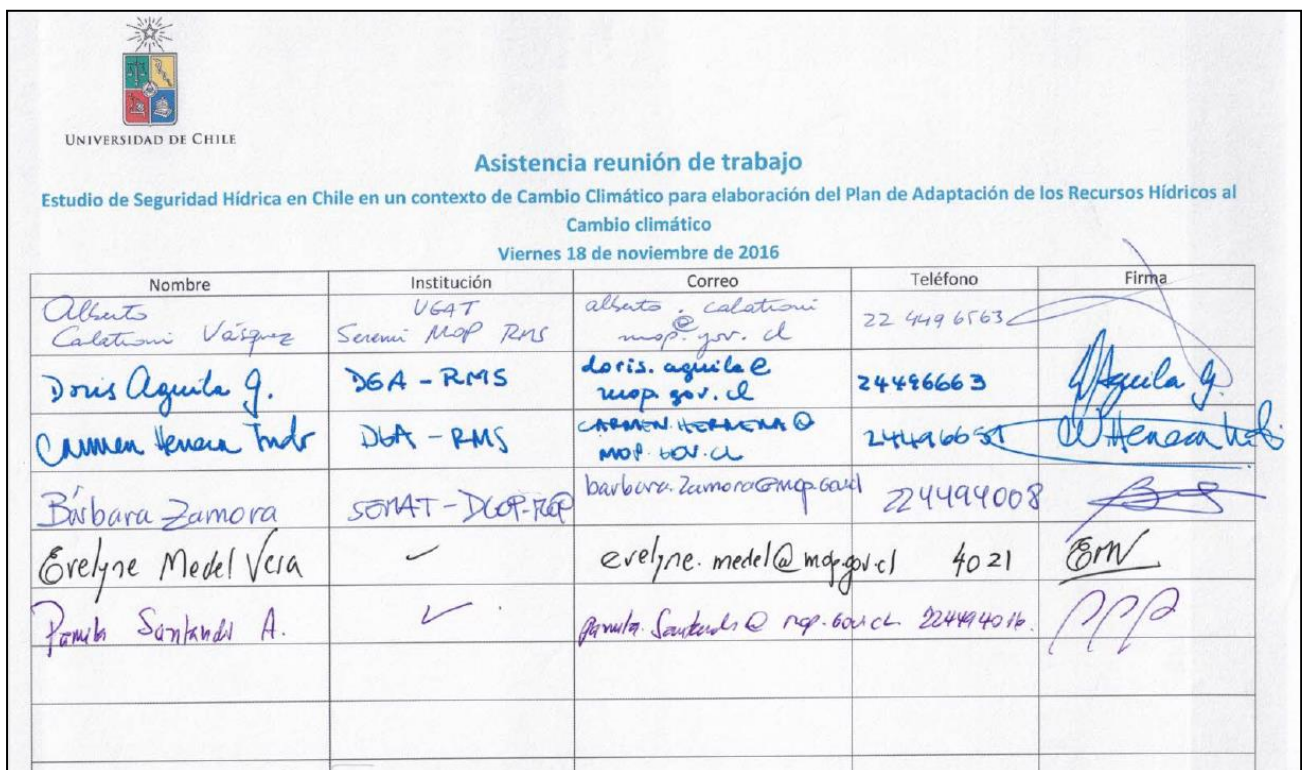 UNIVERSIDAD DE CHILE
Asistencia reunión de trabajo
Estudio de Seguridad Hídrica en Chile en un contexto de Cambio Climático para elaboración del Plan de Adaptación de los Recursos Hídricos al
Cambio climático
Viernes 18 de noviembre de 2016
Nombre Institución Correo Teléfono Firma
Alberto UGAT alberto.calationi
Calationi Vásquez Seremi MOP RMS @ mop.gov.cl 22 4496563
Doris Aguila g. DGA - RMS doris.aguila@ 24496663 Aguila g
mop.gov.cl
Carmen Herrera DGA - RMS CARMEN.HERRERA@
MOP.GOV.CL
Bárbara Zamora SEMAT - DGOP- barbara.zamora@mop.gov.cl 224494008
Evelyne Medel Vera evelyne.medel@mop.gov.cl 4021 EMV
Santander A. mop.gov.cl 224494016.